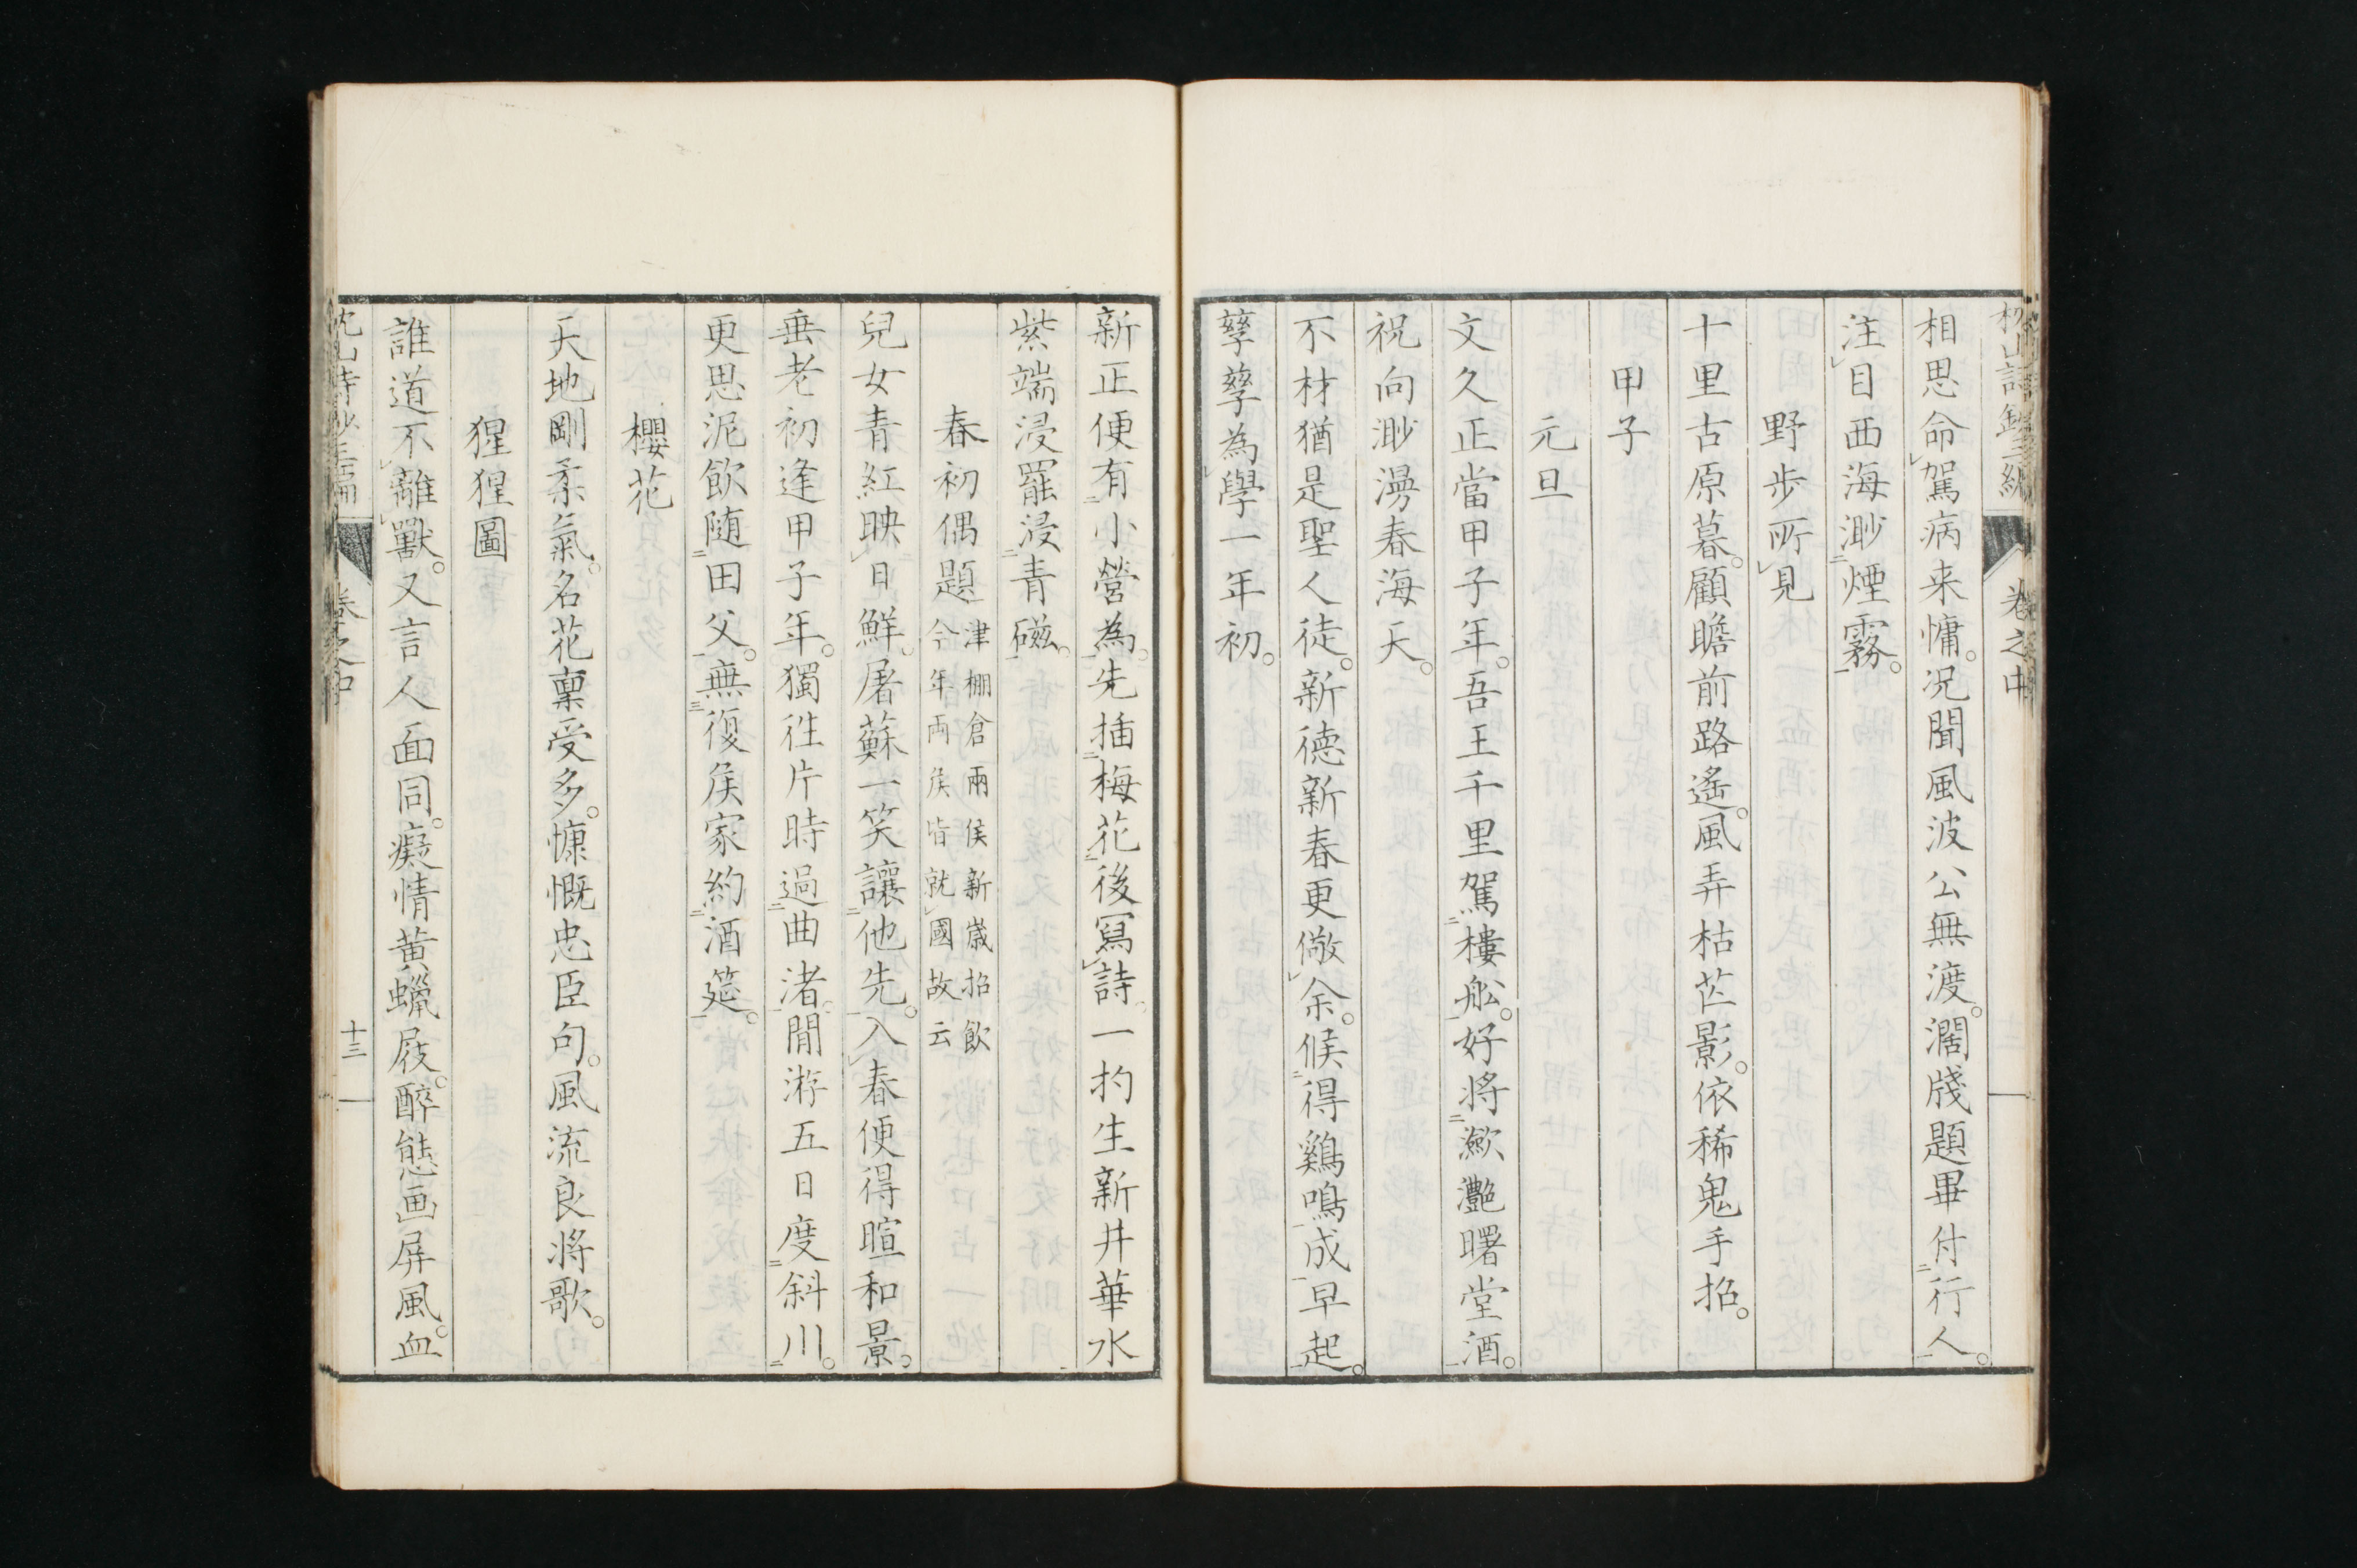 枕山詩鈔三編 卷之中
相思命駕病来慵。况聞風波公無渡。濶牋題畢付行人。
注目西海渺煙霧。
野步所見
十里古原暮。顧瞻前路遙。風弄枯芒影。依稀鬼手招。
甲子
元旦
文久正當甲子年。吾王千里駕樓舩。好將瀲灧曙堂酒。
祝向渺漫春海天。
不材猶是聖人徒。新徳新春更儆余。候得鷄鳴成早起。
孳孳為學一年初。
新正便有小營為。先插梅花後寫詩。一抅生新井華水
紫端浸罷浸青磁。
春初偶題 津棚倉兩侯新歲招飲
今年両侯皆就國故云
兒女青紅映日鮮。屠蘇一笑讓他先。入春便得暄和景。
垂老初逢甲子年。獨徃片時過曲渚。閒游五日度斜川。
更思泥飲随田父。無復侯家約酒筵。
櫻花
天地剛柔氣。名花稟受多。慷慨忠臣句。風流良將歌。
猩猩圖
誰道不離獸。又言人面同。癡情黄蠟屐。醉態画屏風。血
枕山詩鈔三編 卷之中 十三